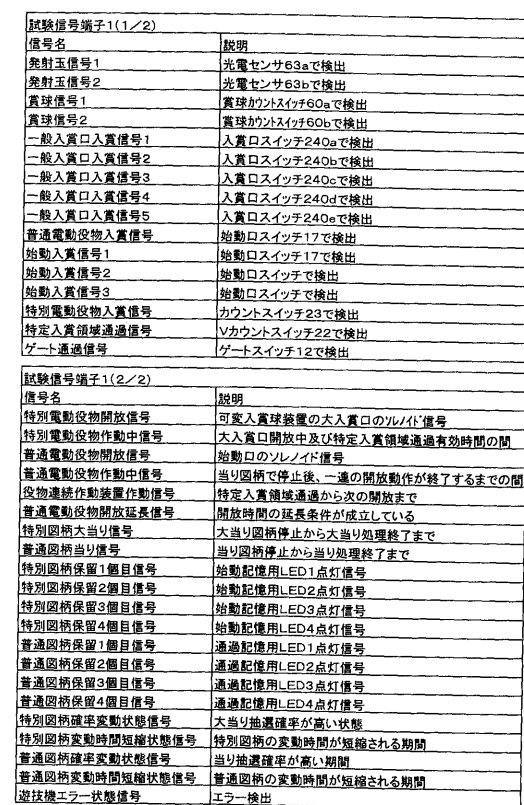 試験信号端子1(1/2)
信号名 説明
発射玉信号1 光電センサ63aで検出
発射玉信号2 光電センサ63bで検出
賞球信号1 賞球カウントスイッチ60aで検出
賞球信号2 賞球カウントスイッチ60bで検出
一般入賞口入賞信号1 入賞口スイッチ240aで検出
一般入賞口入賞信号2 入賞口スイッチ240bで検出
一般入賞口入賞信号3 入賞口スイッチ240cで検出
一般入賞口入賞信号4 入賞口スイッチ240dで検出
一般入賞口入賞信号5 入賞口スイッチ240eで検出
普通電動役物入賞信号 始動口スイッチ17で検出
始動入賞信号1 始動口スイッチ17で検出
始動入賞信号2 始動口スイッチで検出
始動入賞信号3 始動口スイッチで検出
特別電動役物入賞信号 カウントスイッチ23で検出
特定入賞領域通過信号 Vカウントスイッチ22で検出
ゲート通過信号 ゲートスイッチ12で検出
試験信号端子1(2/2)
信号名 説明
特別電動役物開放信号 可変入賞球装置の大入賞口のソレノイド信号
特別電動役物作動中信号 大入賞口開放中及び特定入賞領域通過有効時間の間
普通電動役物開放信号 始動口のソレノイド信号
普通電動役物作動中信号 当り図柄で停止後、一連の開放動作が終了するまでの間
役物連続作動装置作動信号 特定入賞領域通過から次の開放まで
普通電動役物開放延長信号 開放時間の延長条件が成立している
特別図柄大当り信号 大当り図柄停止から大当り処理終了まで
普通図柄当り信号 当り図柄停止から当り処理終了まで
特別図柄保留1個目信号 始動記憶用LED1点灯信号
特別図柄保留2個目信号 始動記憶用LED2点灯信号
特別図柄保留3個目信号 始動記憶用LED3点灯信号
特別図柄保留4個目信号 始動記憶用LED4点灯信号
普通図柄保留1個目信号 通過記憶用LED1点灯信号
普通図柄保留2個目信号 通過記憶用LED2点灯信号
普通図柄保留3個目信号 通過記憶用LED3点灯信号
普通図柄保留4個目信号 通過記憶用LED4点灯信号
特別図柄確率変動状態信号 大当り抽選確率が高い状態
特別図柄変動時間短縮状態信号 特別図柄の変動時間が短縮される期間
普通図柄確率変動状態信号 当り抽選確率が高い期間
普通図柄変動時間短縮状態信号 普通図柄の変動時間が短縮される期間
遊技機エラー状態信号 エラー検出